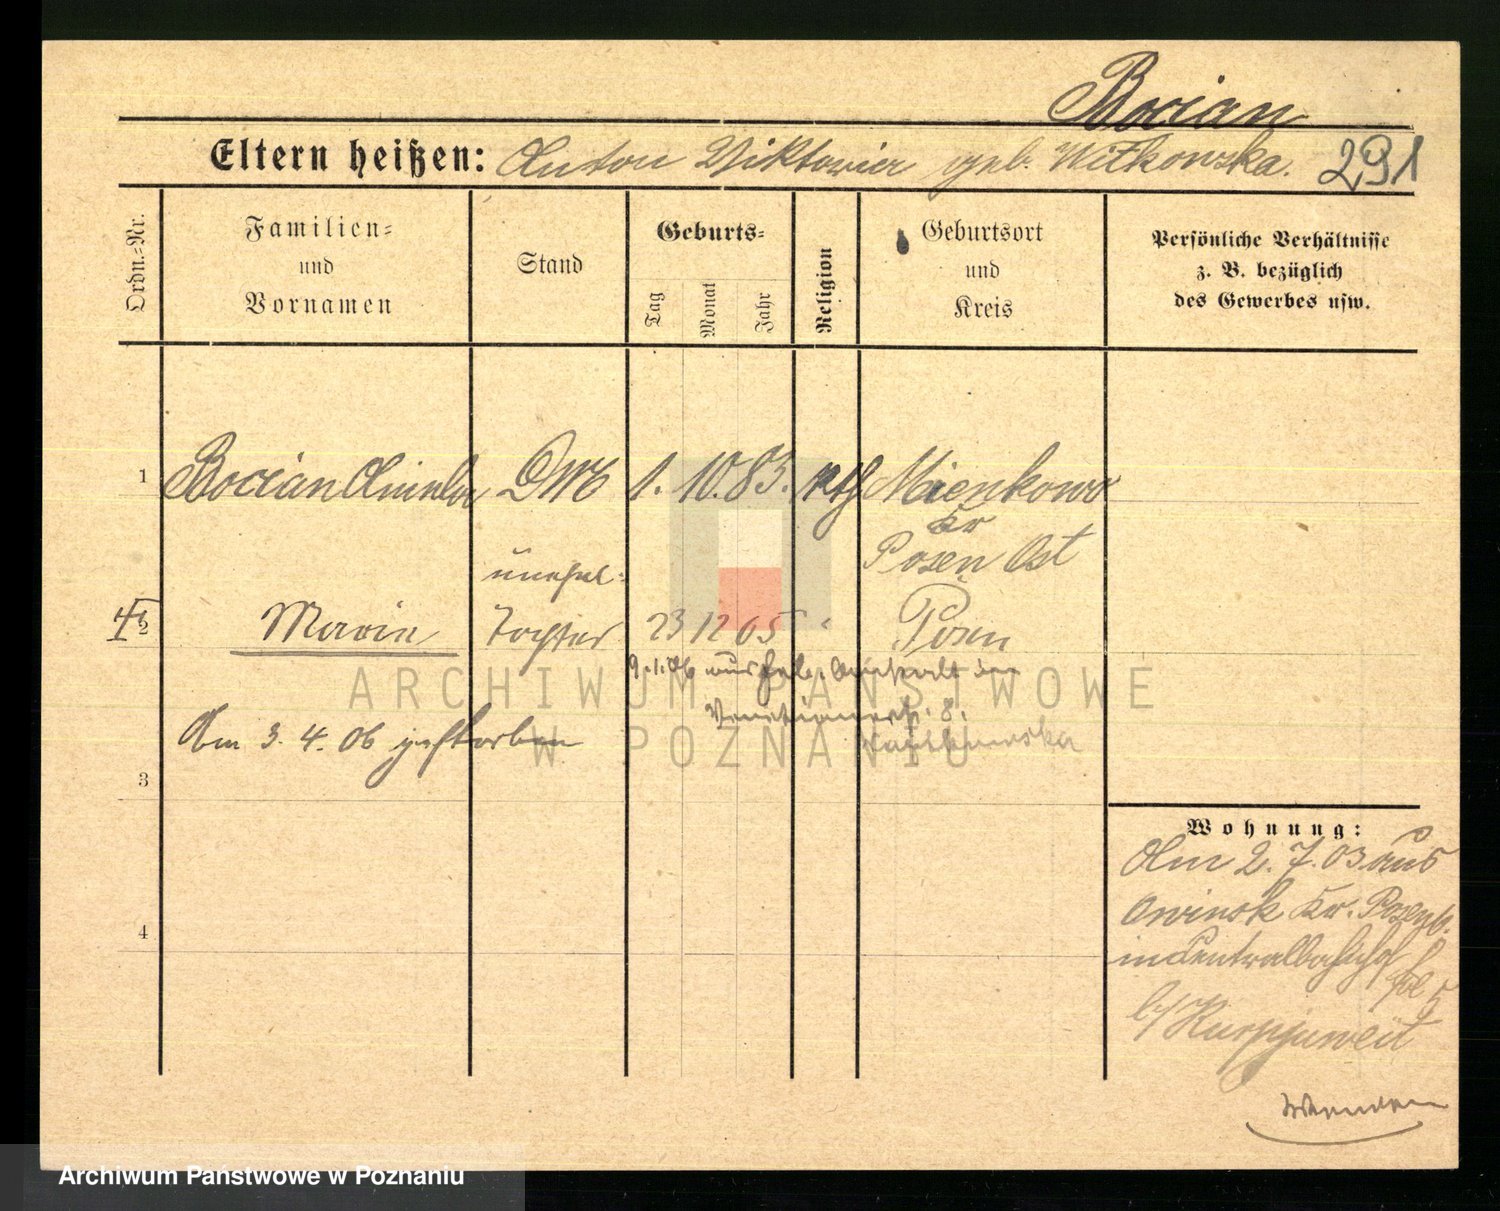 Bocian
Eltern heißen: Anton Viktoria geb. Witkowska. 291
Ordn.-Nr.
Familien- und Vornamen
Stand
Geburts-
Tag
Monat
Jahr
Religion
Geburtsort und Kreis
Persönliche Verhältnisse z. B. bezüglich des Gewerbes usw.
1 Bocian 1. 10. 83. kth Mienkowo
Kr
Posen Ost
unehel.
2 Marie Tochter 23 12 05 " Posen
9.1.06
Am 3. 4. 06 gestorben
8.
3
Wohnung:
Am 2. 7. 03 aus
Owinsk Kr.
4
in Centralbahnhof
b/
Wenden
ARCHIWUM PAŃSTWOWE
W POZNANIU
Archiwum Państwowe w Poznaniu